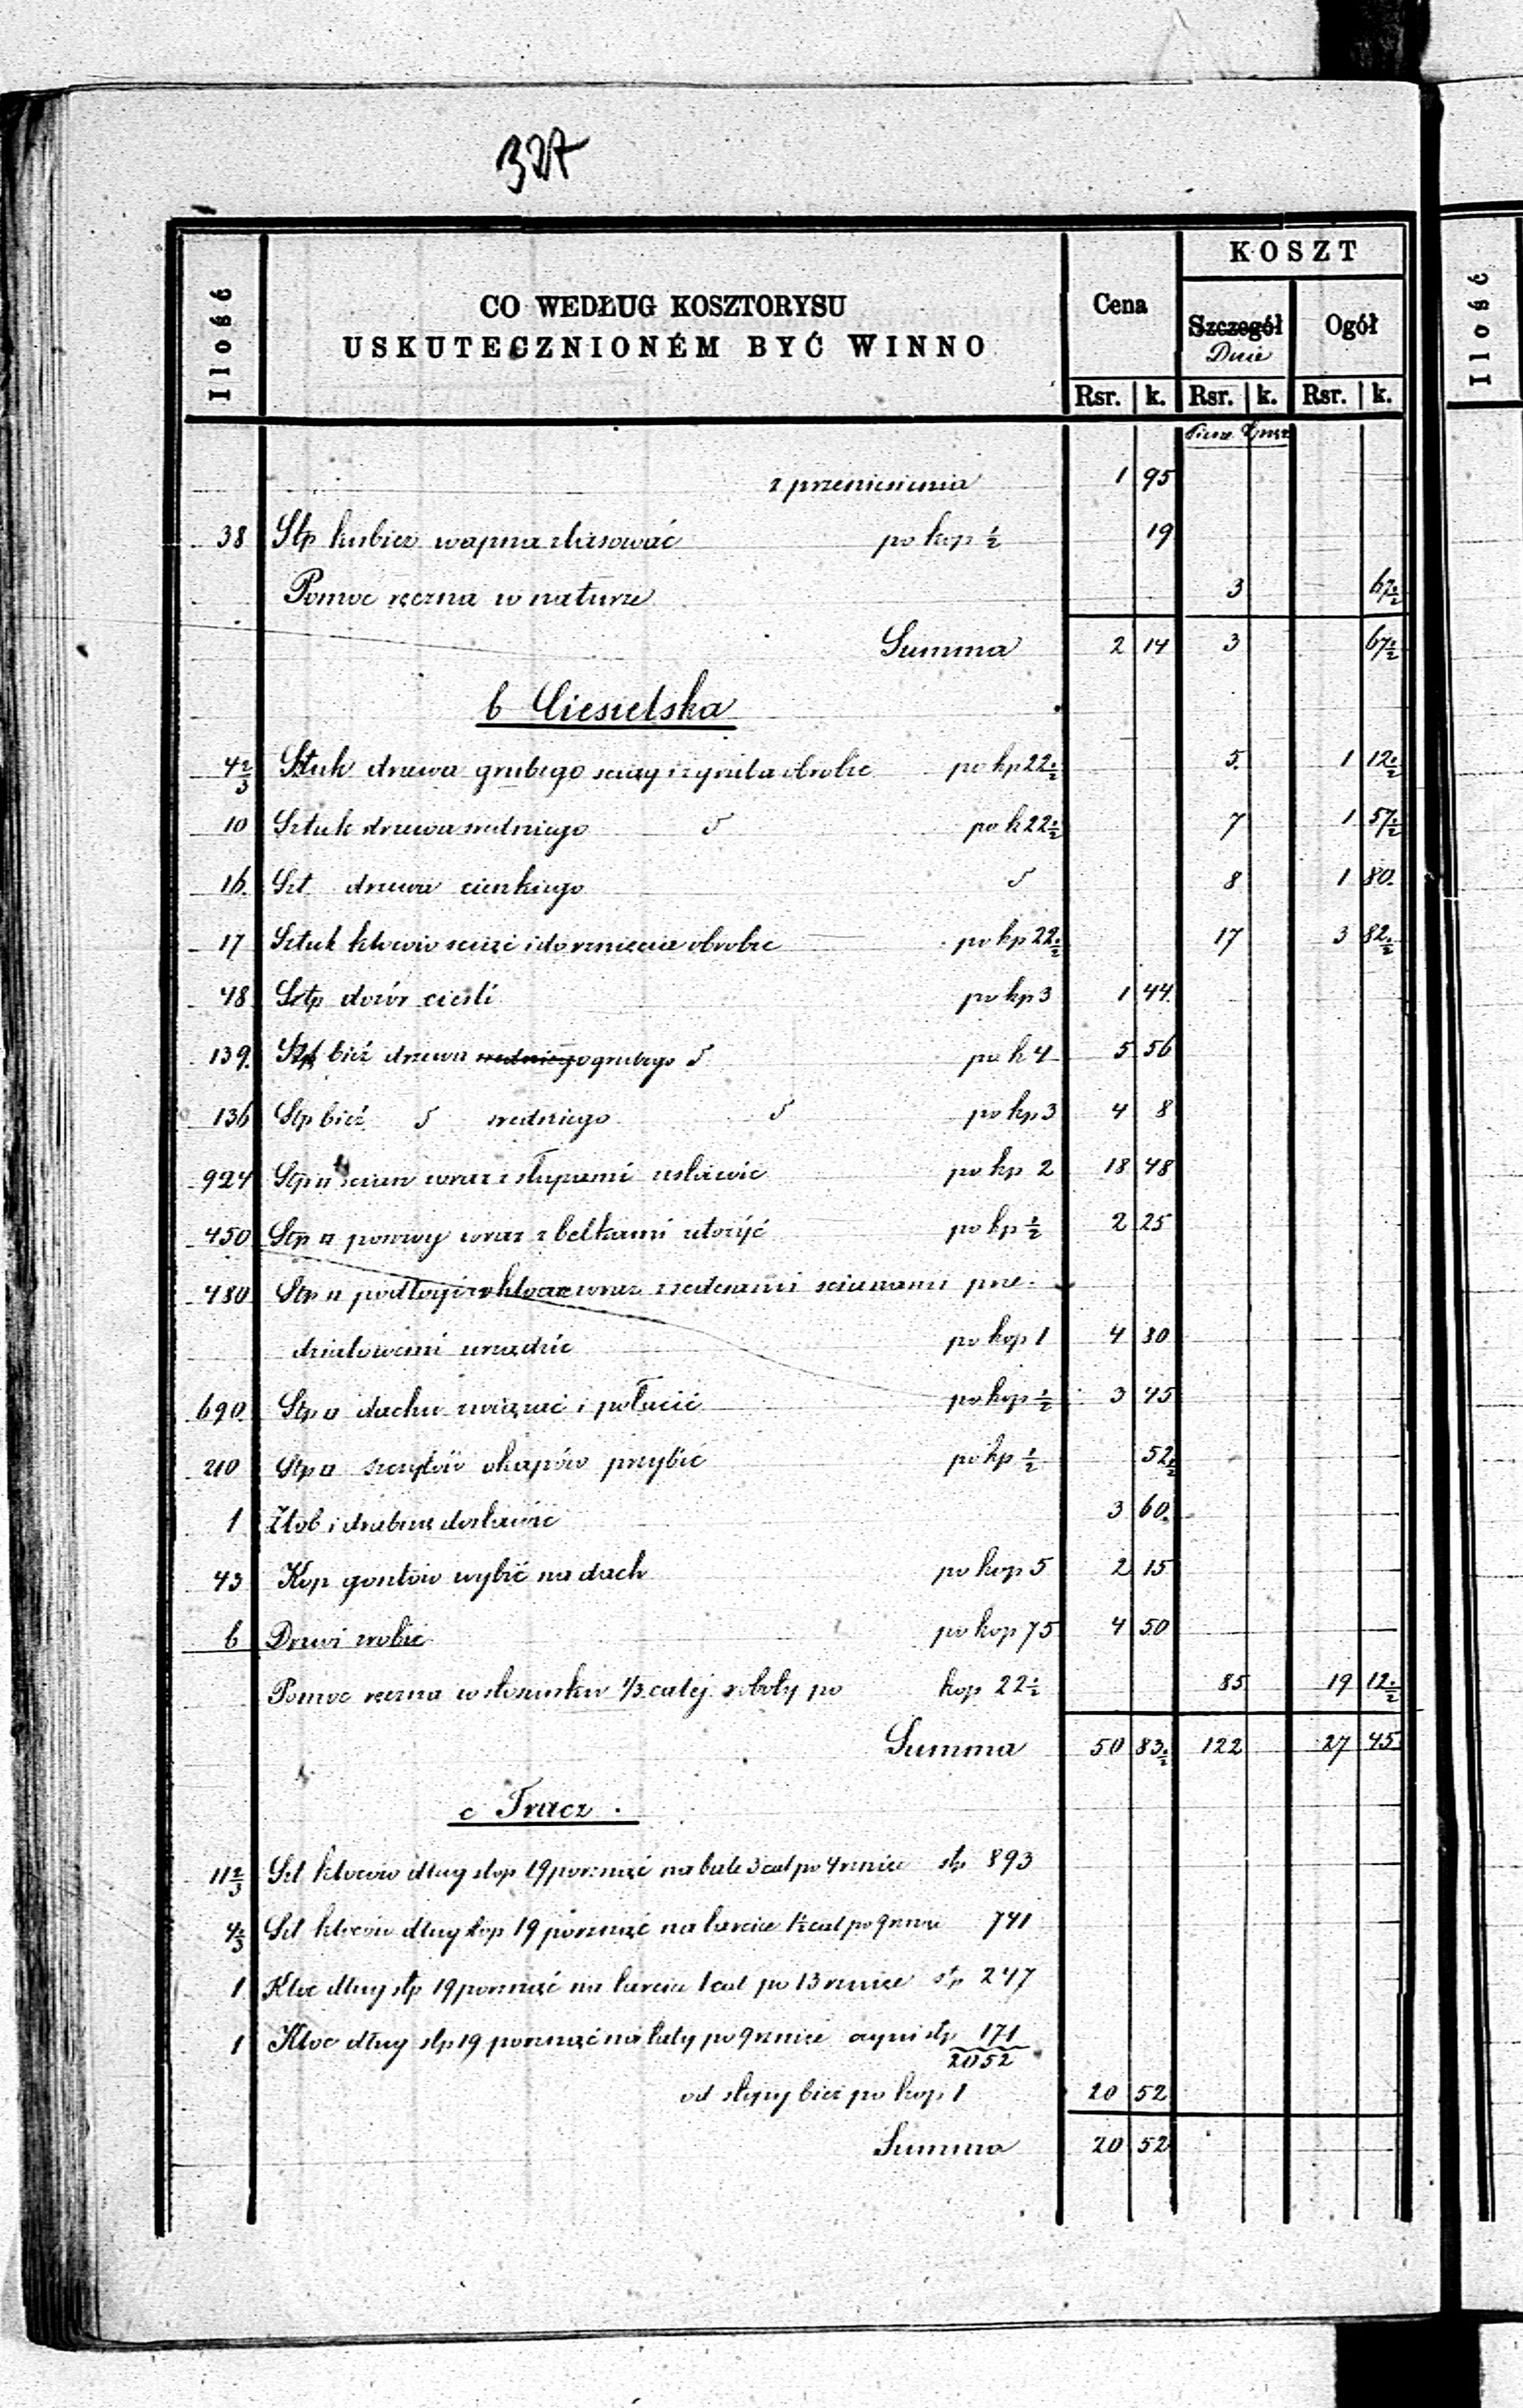 327
Ilość | CO WEDŁUG KOSZTORYSU USKUTECZNIONÉM BYĆ WINNO | Cena | KOSZT
Szczegół Dnie | Ogół
Rsr. | k. | Rsr. | k. | Rsr. | k.
Piesze
z przeniesienia 1 95
38 Stp kubicz wapna zlasować po kop ½ 19
Pomoc ręczna w naturze 3 67½
Summa 2 14 3 67½
b Ciesielska
4⅔ Sztuk drzewa grubego obrobić po kp 22½ 5 1 12½
10 Sztuk drzewa średniego po k 22½ 7 1 57½
16 Szt drzewa cienkiego 8 1 80
17 Sztuk kloców ściąć i do rznięcia obrobić po kp 22½ 17 3 82½
48 Sztp dozór cieśli po kp 3 1 44
139 bież drzewa średniego grubego po k 4 5 56
136 Stp bież średniego po kp 3 4 8
924 Stp □ ścian wraz z słupami ustawić po kp 2 18 48
450 Stp □ posowy wraz z belkami ułożyć po kp ½ 2 25
480 Stp □ podłogi wraz ścianami prze-
działowemi urządzić po kop 1 4 80
690 Stp □ dachu związać i połacić po kop ½ 3 45
210 Stp □ szczytów okapów przybić po kp ½ 52½
1 Żłob i drabinę dostawić 3 60
43 Kop gontów wybić na dach po kop 5 2 15
6 Drzwi zrobić po kop 75 4 50
Pomoc ręczna w stosunku ⅓ całej roboty po kop 22½ 85 19 12½
Summa 50 83½ 122 27 45
c Tracz.
11⅔ Szt kloców dług stop 19 porznąć na bale 3 cal po 4 rznice stp 893
4⅓ Szt kloców dług stop 19 porznąć na tarcice 1½ cal po 9 rznic 741
1 Kloc długi stp 19 porznąć na tarcice 1 cal po 13 rznice stp 247
1 Kloc długi stp 19 porznąć na łaty po 9 rznice czyni stp 171
2052
od stopy bież po kop 1 20 52
Summa 20 52
Ilość